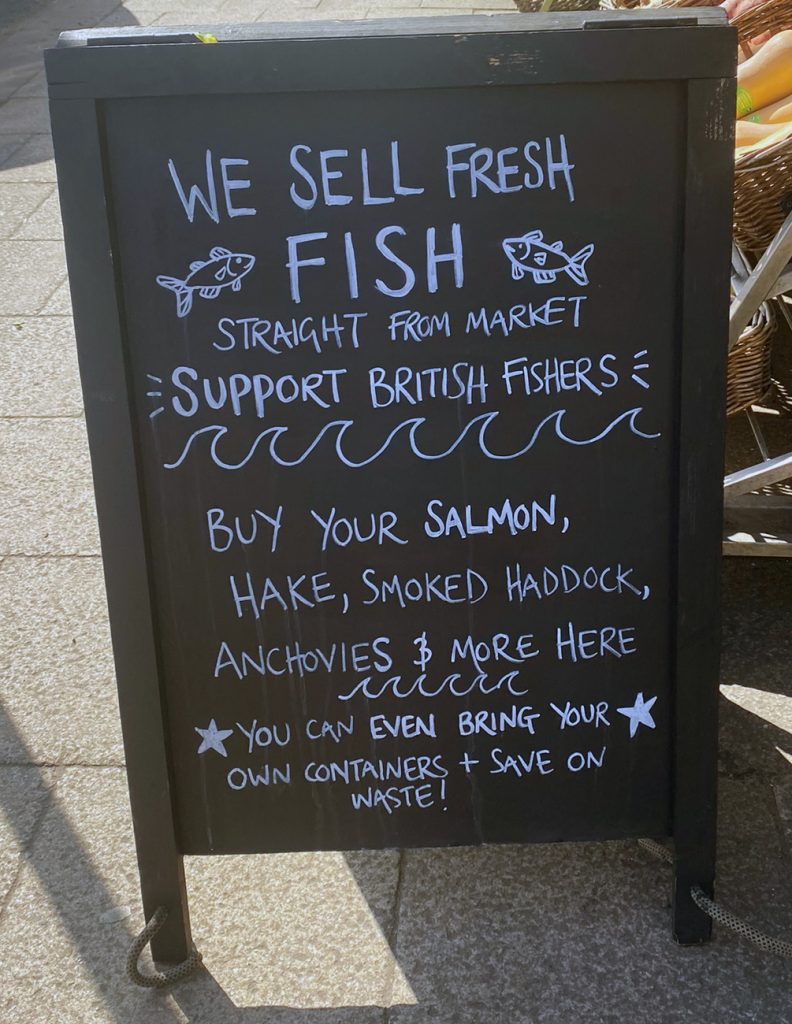 WE SELL FRESH
FISH
STRAIGHT FROM MARKET
SUPPORT BRITISH FISHERS
BUY YOUR SALMON,
HAKE, SMOKED HADDOCK,
ANCHOVIES & MORE HERE
YOU CAN EVEN BRING YOUR
OWN CONTAINERS + SAVE ON
WASTE!